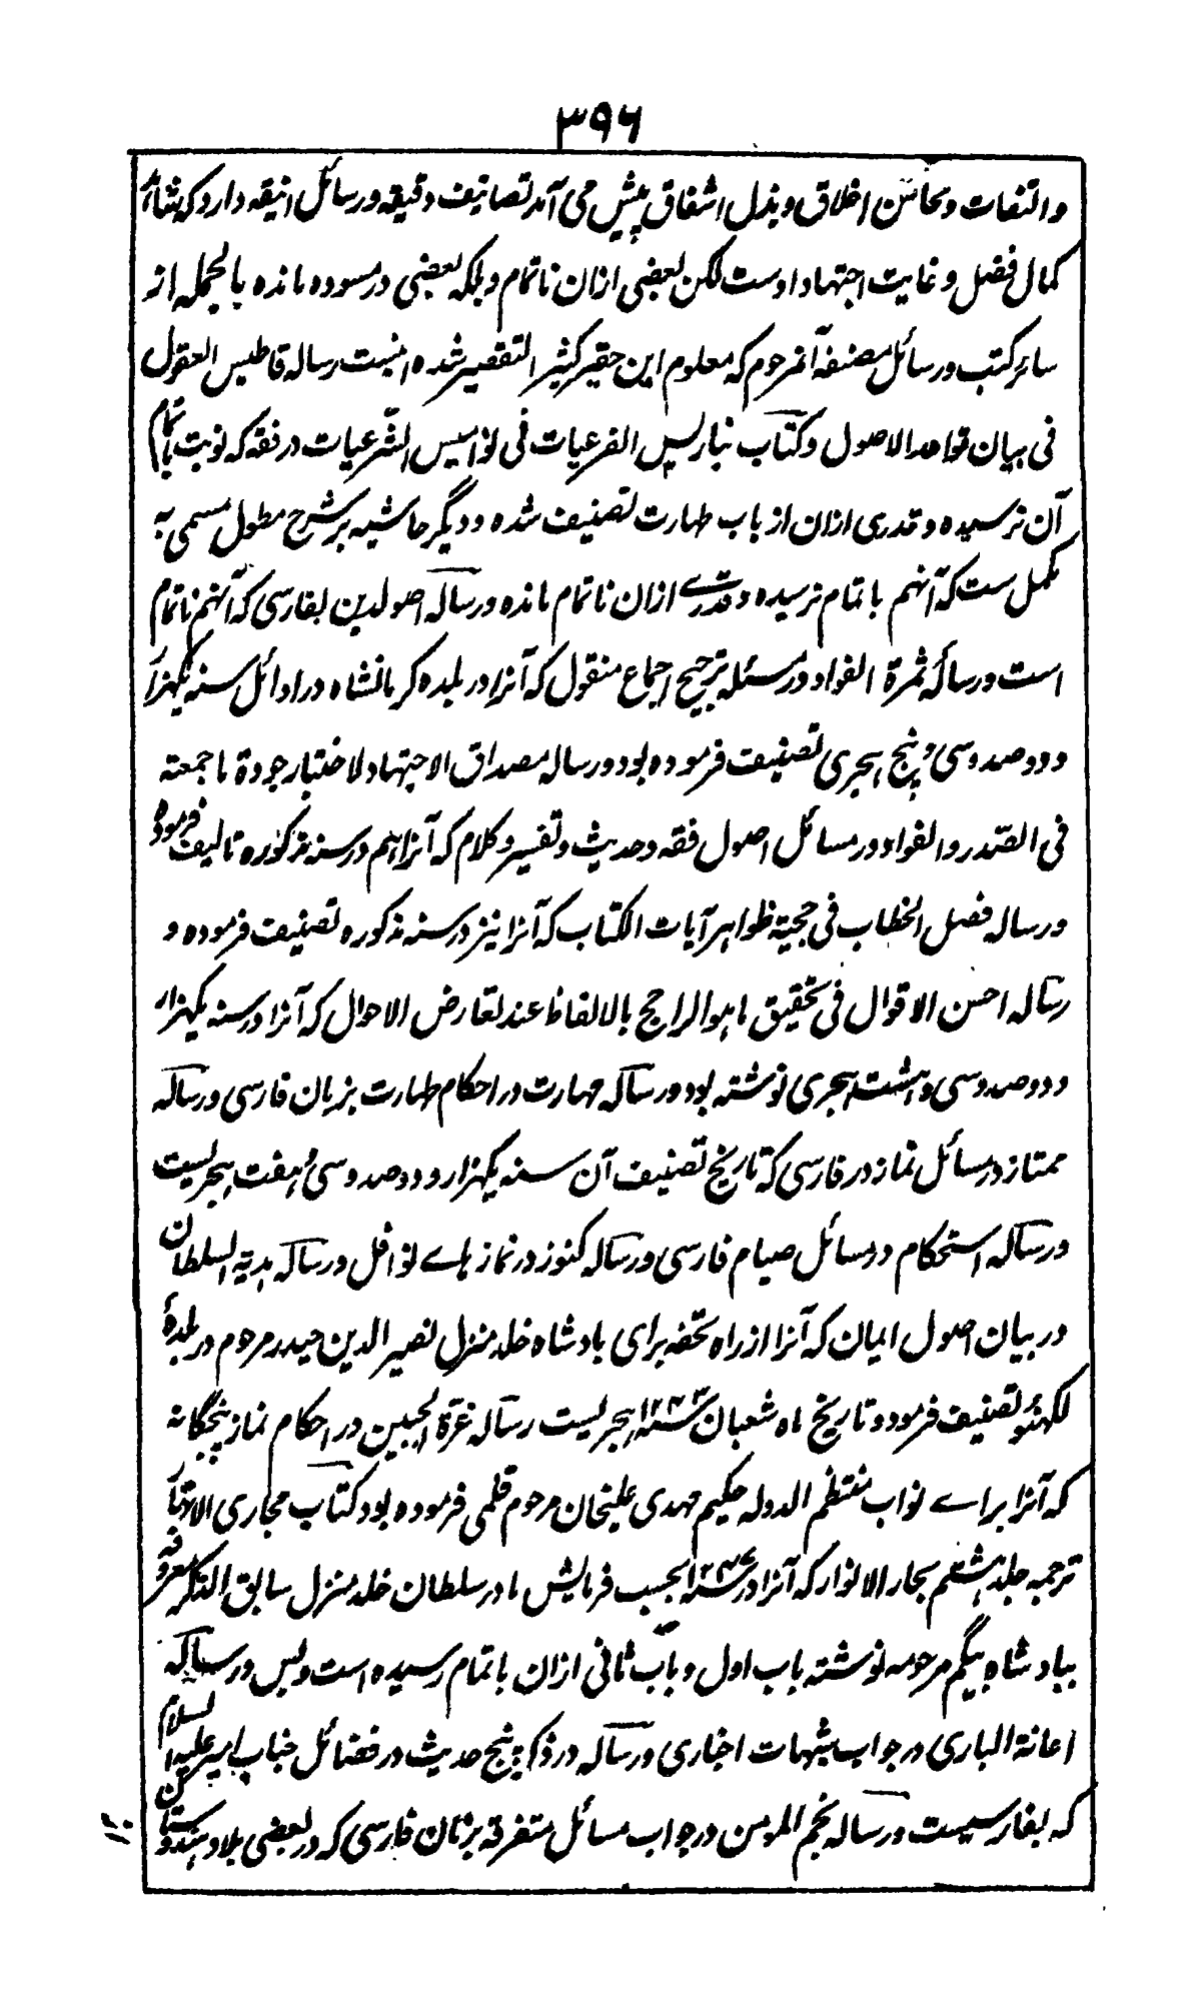 ۳۹۶
والتفات و محاسن اخلاق و بذل اشفاق پیش می آمد تصانیف دقیقه و رسائل انیقه دارد که شاهد
کمال فضل و غایت اجتهاد اوست لکن بعضی ازان ناتمام و بلکه بعضی در مسوده مانده بالجمله از
سائر کتب و رسائل مصنفهٔ آنمرحوم که معلوم این حقیر کثیر التقصیر شده اینست رساله قاطیس العقول
فی بیان قواعد الاصول و کتاب نباریس الفرعیات فی نوامیس الشرعیات در فقه که نوبت باتمام
آن نرسیده و قدری ازان از باب طهارت تصنیف شده و دیگر حاشیه بر شرح مطول مسمی به
مکمل ست که آنهم باتمام نرسیده و قدرے ازان ناتمام مانده و رساله اصولدین بفارسی که آنهم ناتمام
است و رسالهٔ ثمرة الفواد در مسئله ترجیح اجماع منقول که آنرا در بلده کرمانشاه در اوائل سنه یکهزار
و دو صد و سی و پنج هجری تصنیف فرموده بود و رساله مصداق الاجتهاد لاختبار جودة ما جمعته
فی الصدر و الفواد در مسائل اصول فقه و حدیث و تفسیر و کلام که آنرا هم در سنه مذکوره تالیف فرموده
و رساله فصل الخطاب فی حجیة ظواهر آیات الکتاب که آنرا نیز در سنه مذکوره تصنیف فرموده و
رساله احسن الاقوال فی تحقیق ما هو الراجح بالالفاظ عند تعارض الاحوال که آنرا در سنه یکهزار
و دو صد و سی و هشت هجری نوشته بود و رساله مهارت در احکام طهارت بزبان فارسی و رساله
ممتاز در مسائل نماز در فارسی که تاریخ تصنیف آن سنه یکهزار و دو صد و سی و هفت هجریست
و رساله استحکام در مسائل صیام فارسی و رساله کنوز در نماز هاے نوافل و رساله هدیة السلطان
در بیان اصول ایمان که آنرا از راه تحفه برای بادشاه خلد منزل نصیر الدین حیدر مرحوم در بلدهٔ
لکهنؤ تصنیف فرمود و تاریخ ماه شعبان سنه ۱۲۴۳ هجریست رساله غرة الجبین در احکام نماز پنجگانه
که آنرا براے نواب منتظم الدوله حکیم مهدی علیخان مرحوم قلمی فرموده بود کتاب مجاری الانهار
ترجمه جلد هشتم بحار الانوار که آنرا در سنه بحسب فرمایش مادر سلطان خلد منزل سابق الذکر معروفه
ببادشاه بیگم مرحومه نوشته باب اول و باب ثانی ازان باتمام رسیده است و بس و رساله
اعانة الباری در جواب شبهات اخباری و رساله در ذکر پنج حدیث در فضائل جناب امیر علیه السلام
که بفارسیست و رساله نجم المؤمن در جواب مسائل متفرقه بزبان فارسی که در بعضی بلاد هندوستان